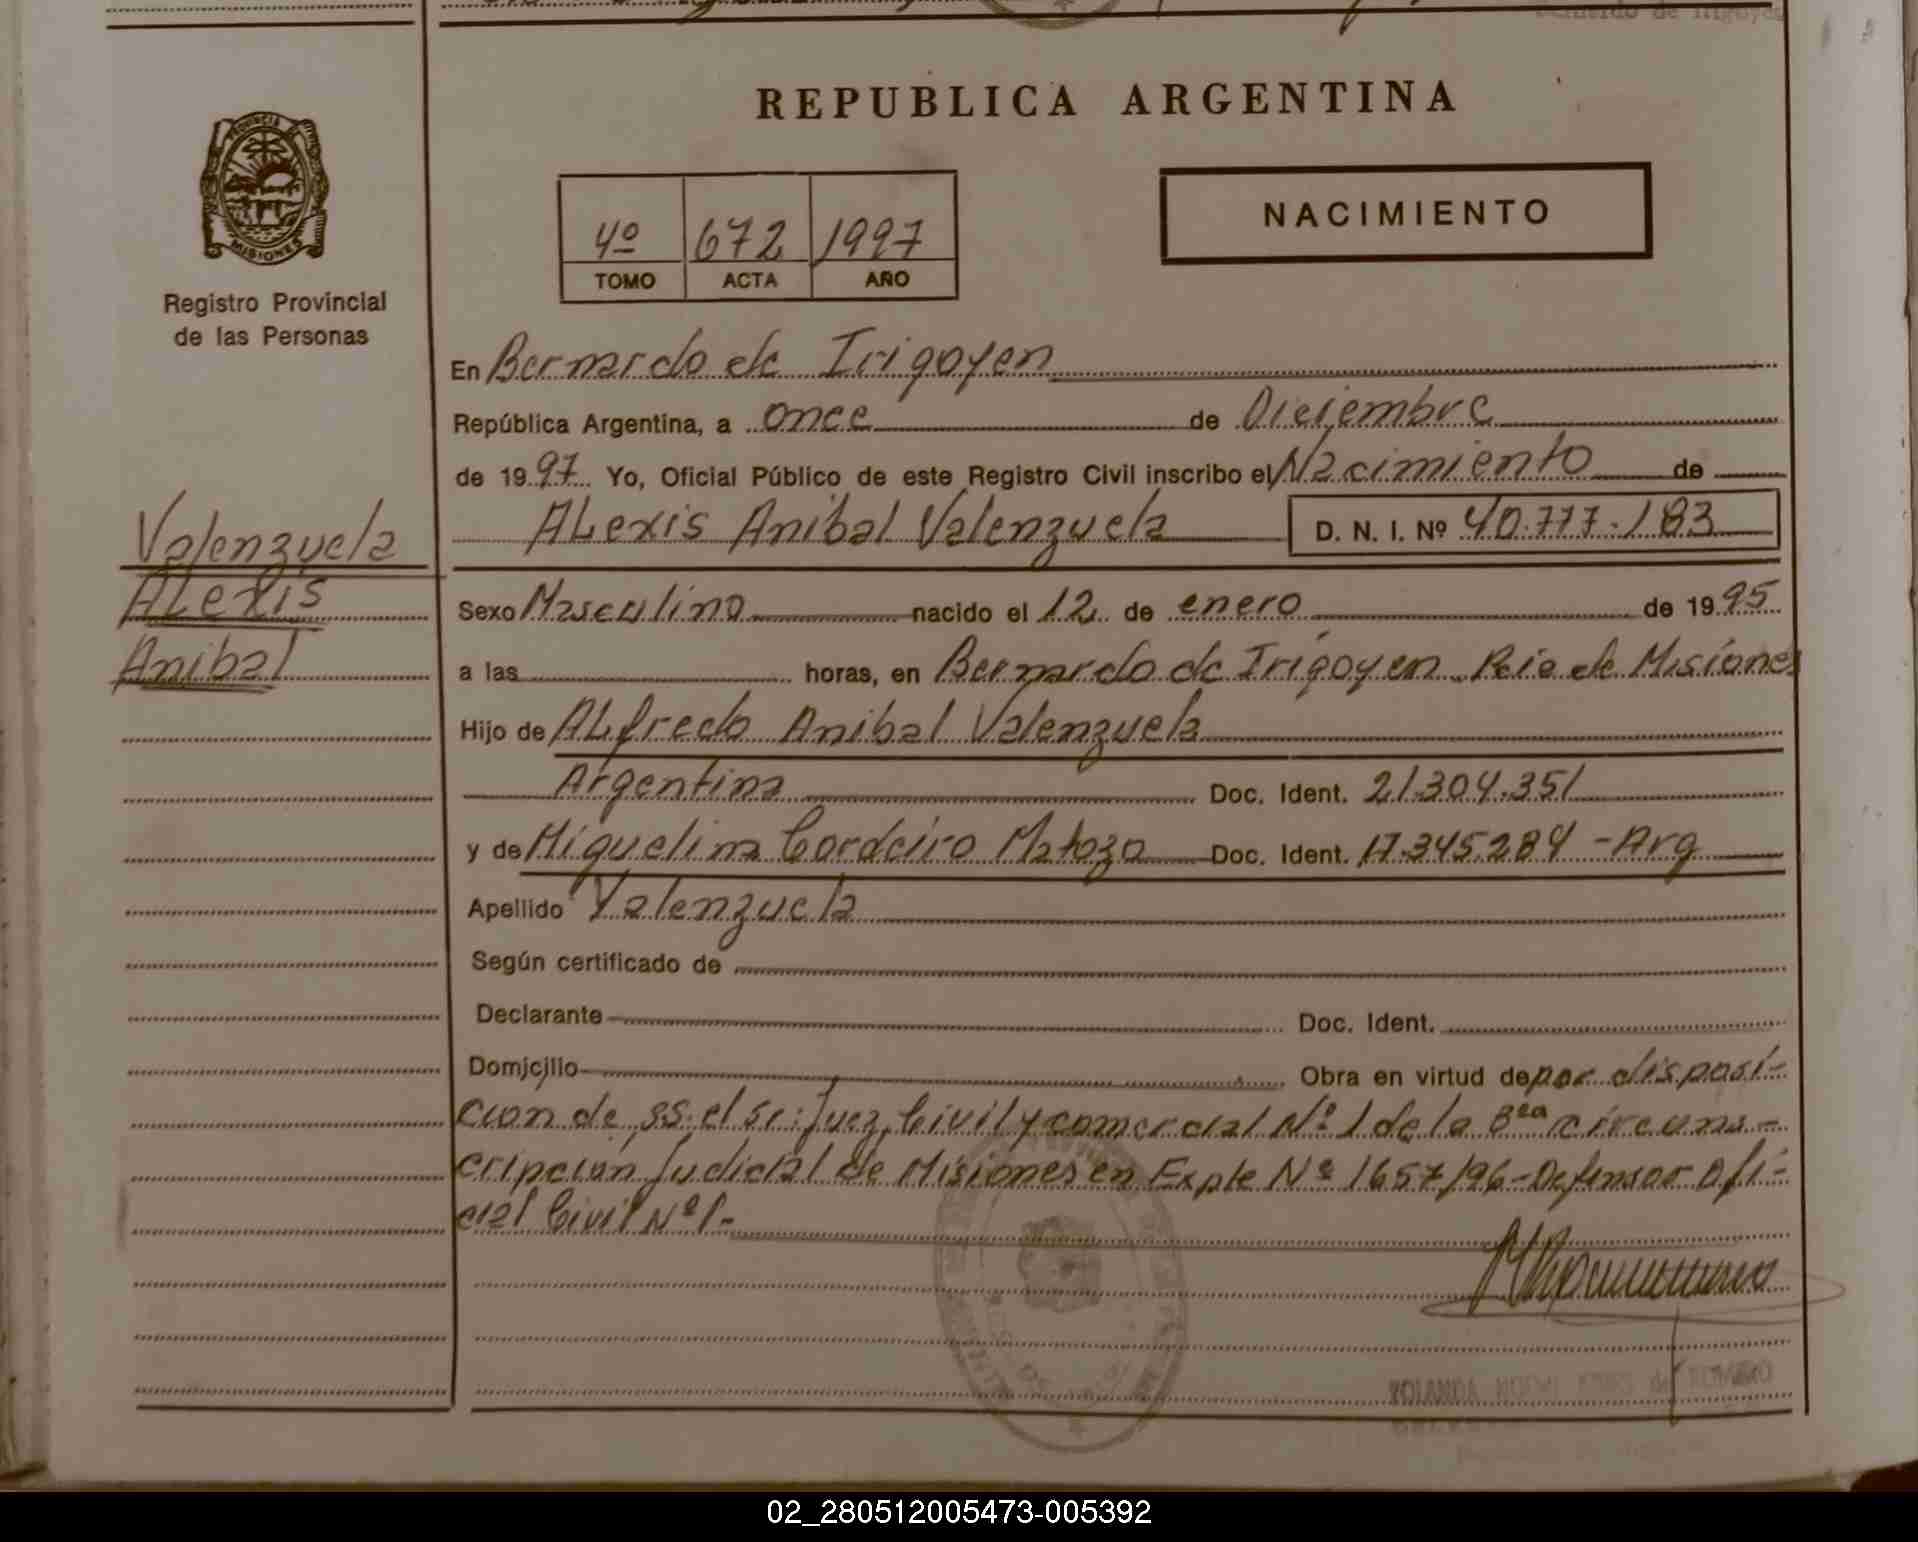 REPUBLICA ARGENTINA
PROVINCIA DE
MISIONES
Registro Provincial
de las Personas
NACIMIENTO
4º 672 1997
TOMO ACTA AÑO
En Bernardo de Irigoyen
República Argentina, a once de Diciembre
de 1997 Yo, Oficial Público de este Registro Civil inscribo el Nacimiento de
Valenzuela
Alexis
Anibal
ALexis Anibal Valenzuela D. N. I. Nº 40.717.183
Sexo Masculino nacido el 12 de enero de 1995
a las horas, en Bernardo de Irigoyen Pcie de Misiones
Hijo de ALfredo Anibal Valenzuela
Argentina Doc. Ident. 21.304.351
y de Miguelina Cordeiro Matozo Doc. Ident. 17.345.284 - Arg
Apellido Valenzuela
Según certificado de
Declarante Doc. Ident.
Domicilio Obra en virtud de por disposi-
cion de ss. el Sr: Juez Civil y comercial Nº 1 de la 3ra circuns-
cripción Judicial de Misiones en Expte Nº 1657/96 - Defensor ofi-
cial Civil Nº 1-
YOLANDA de ROMERO
02_280512005473-005392